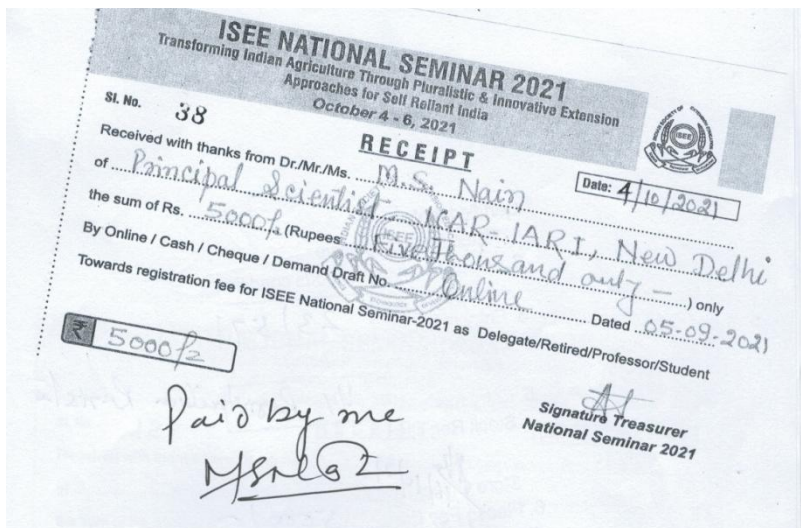 ISEE NATIONAL SEMINAR 2021
Transforming Indian Agriculture Through Pluralistic & Innovative Extension
Approaches for Self Reliant India
October 4 - 6, 2021
Sl. No. 38
RECEIPT
Date: 4/10/2021
Received with thanks from Dr./Mr./Ms. M.S. Nain
of Principal Scientist ICAR-IARI, New Delhi
the sum of Rs. 5000/- (Rupees Five Thousand only —) only
By Online / Cash / Cheque / Demand Draft No. Online Dated 05-09-2021
Towards registration fee for ISEE National Seminar-2021 as Delegate/Retired/Professor/Student
₹ 5000/-
Signature Treasurer
National Seminar 2021
Paid by me
ISEE